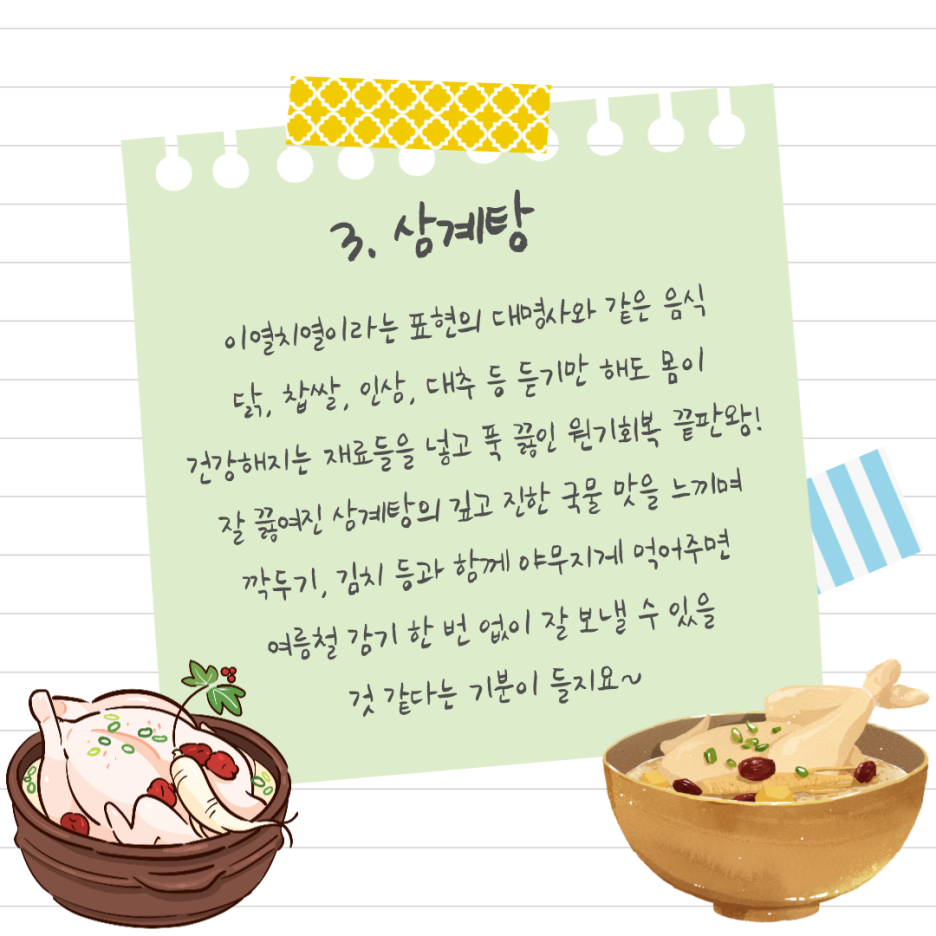 3. 삼계탕
이열치열이라는 표현의 대명사와 같은 음식
닭, 찹쌀, 인삼, 대추 등 듣기만 해도 몸이
건강해지는 재료들을 넣고 푹 끓인 원기회복 끝판왕!
잘 끓여진 삼계탕의 깊고 진한 국물 맛을 느끼며
깍두기, 김치 등과 함께 야무지게 먹어주면
여름철 감기 한 번 없이 잘 보낼 수 있을
것 같다는 기분이 들지요~